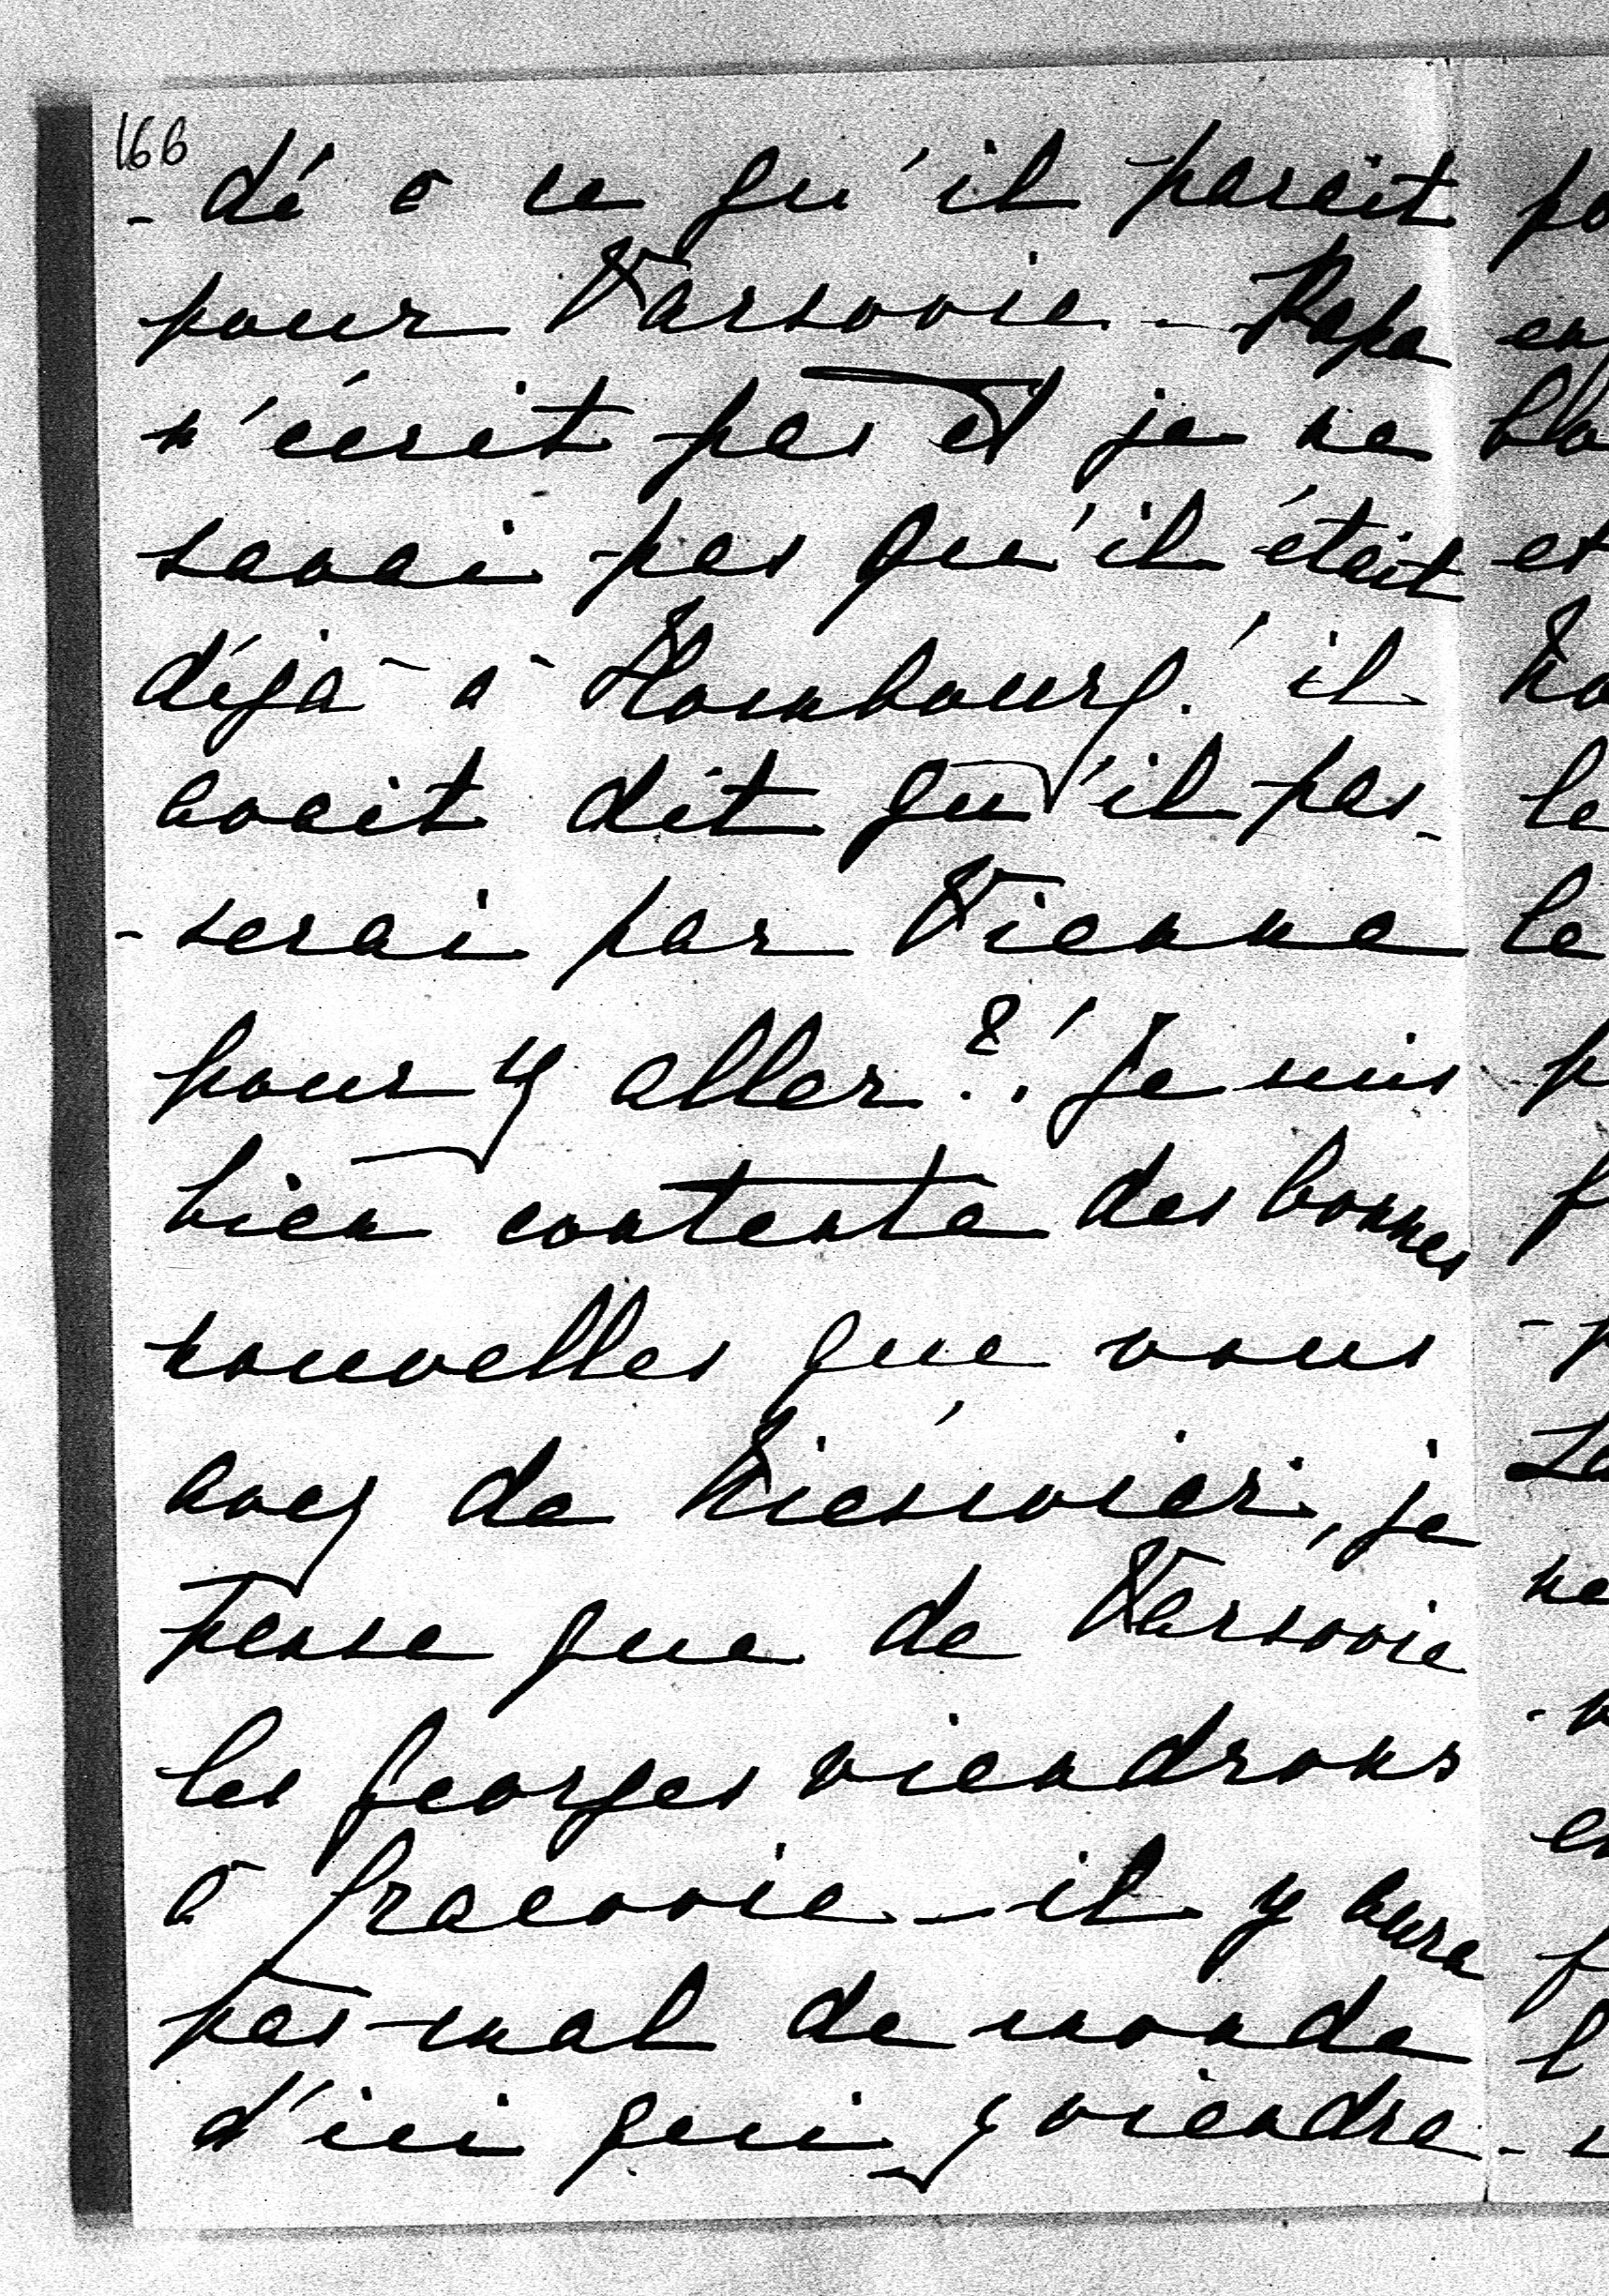 166
- dé a ce qu'il parait
pour Varsovie - Papa
n'écrit pas et je ne
savai pas qu'il était
déja à Hombourg! il
avait dit qu'il pas-
- serai par Vienne
pour y aller?! Je suis
bien contente des bonnes
nouvelles que vous
avez de Niéswiéz, je
pense que de Varsovie
les Georges viendrons
à Cracovie - il y aura
pas mal de monde
d'ici qui y viendra -